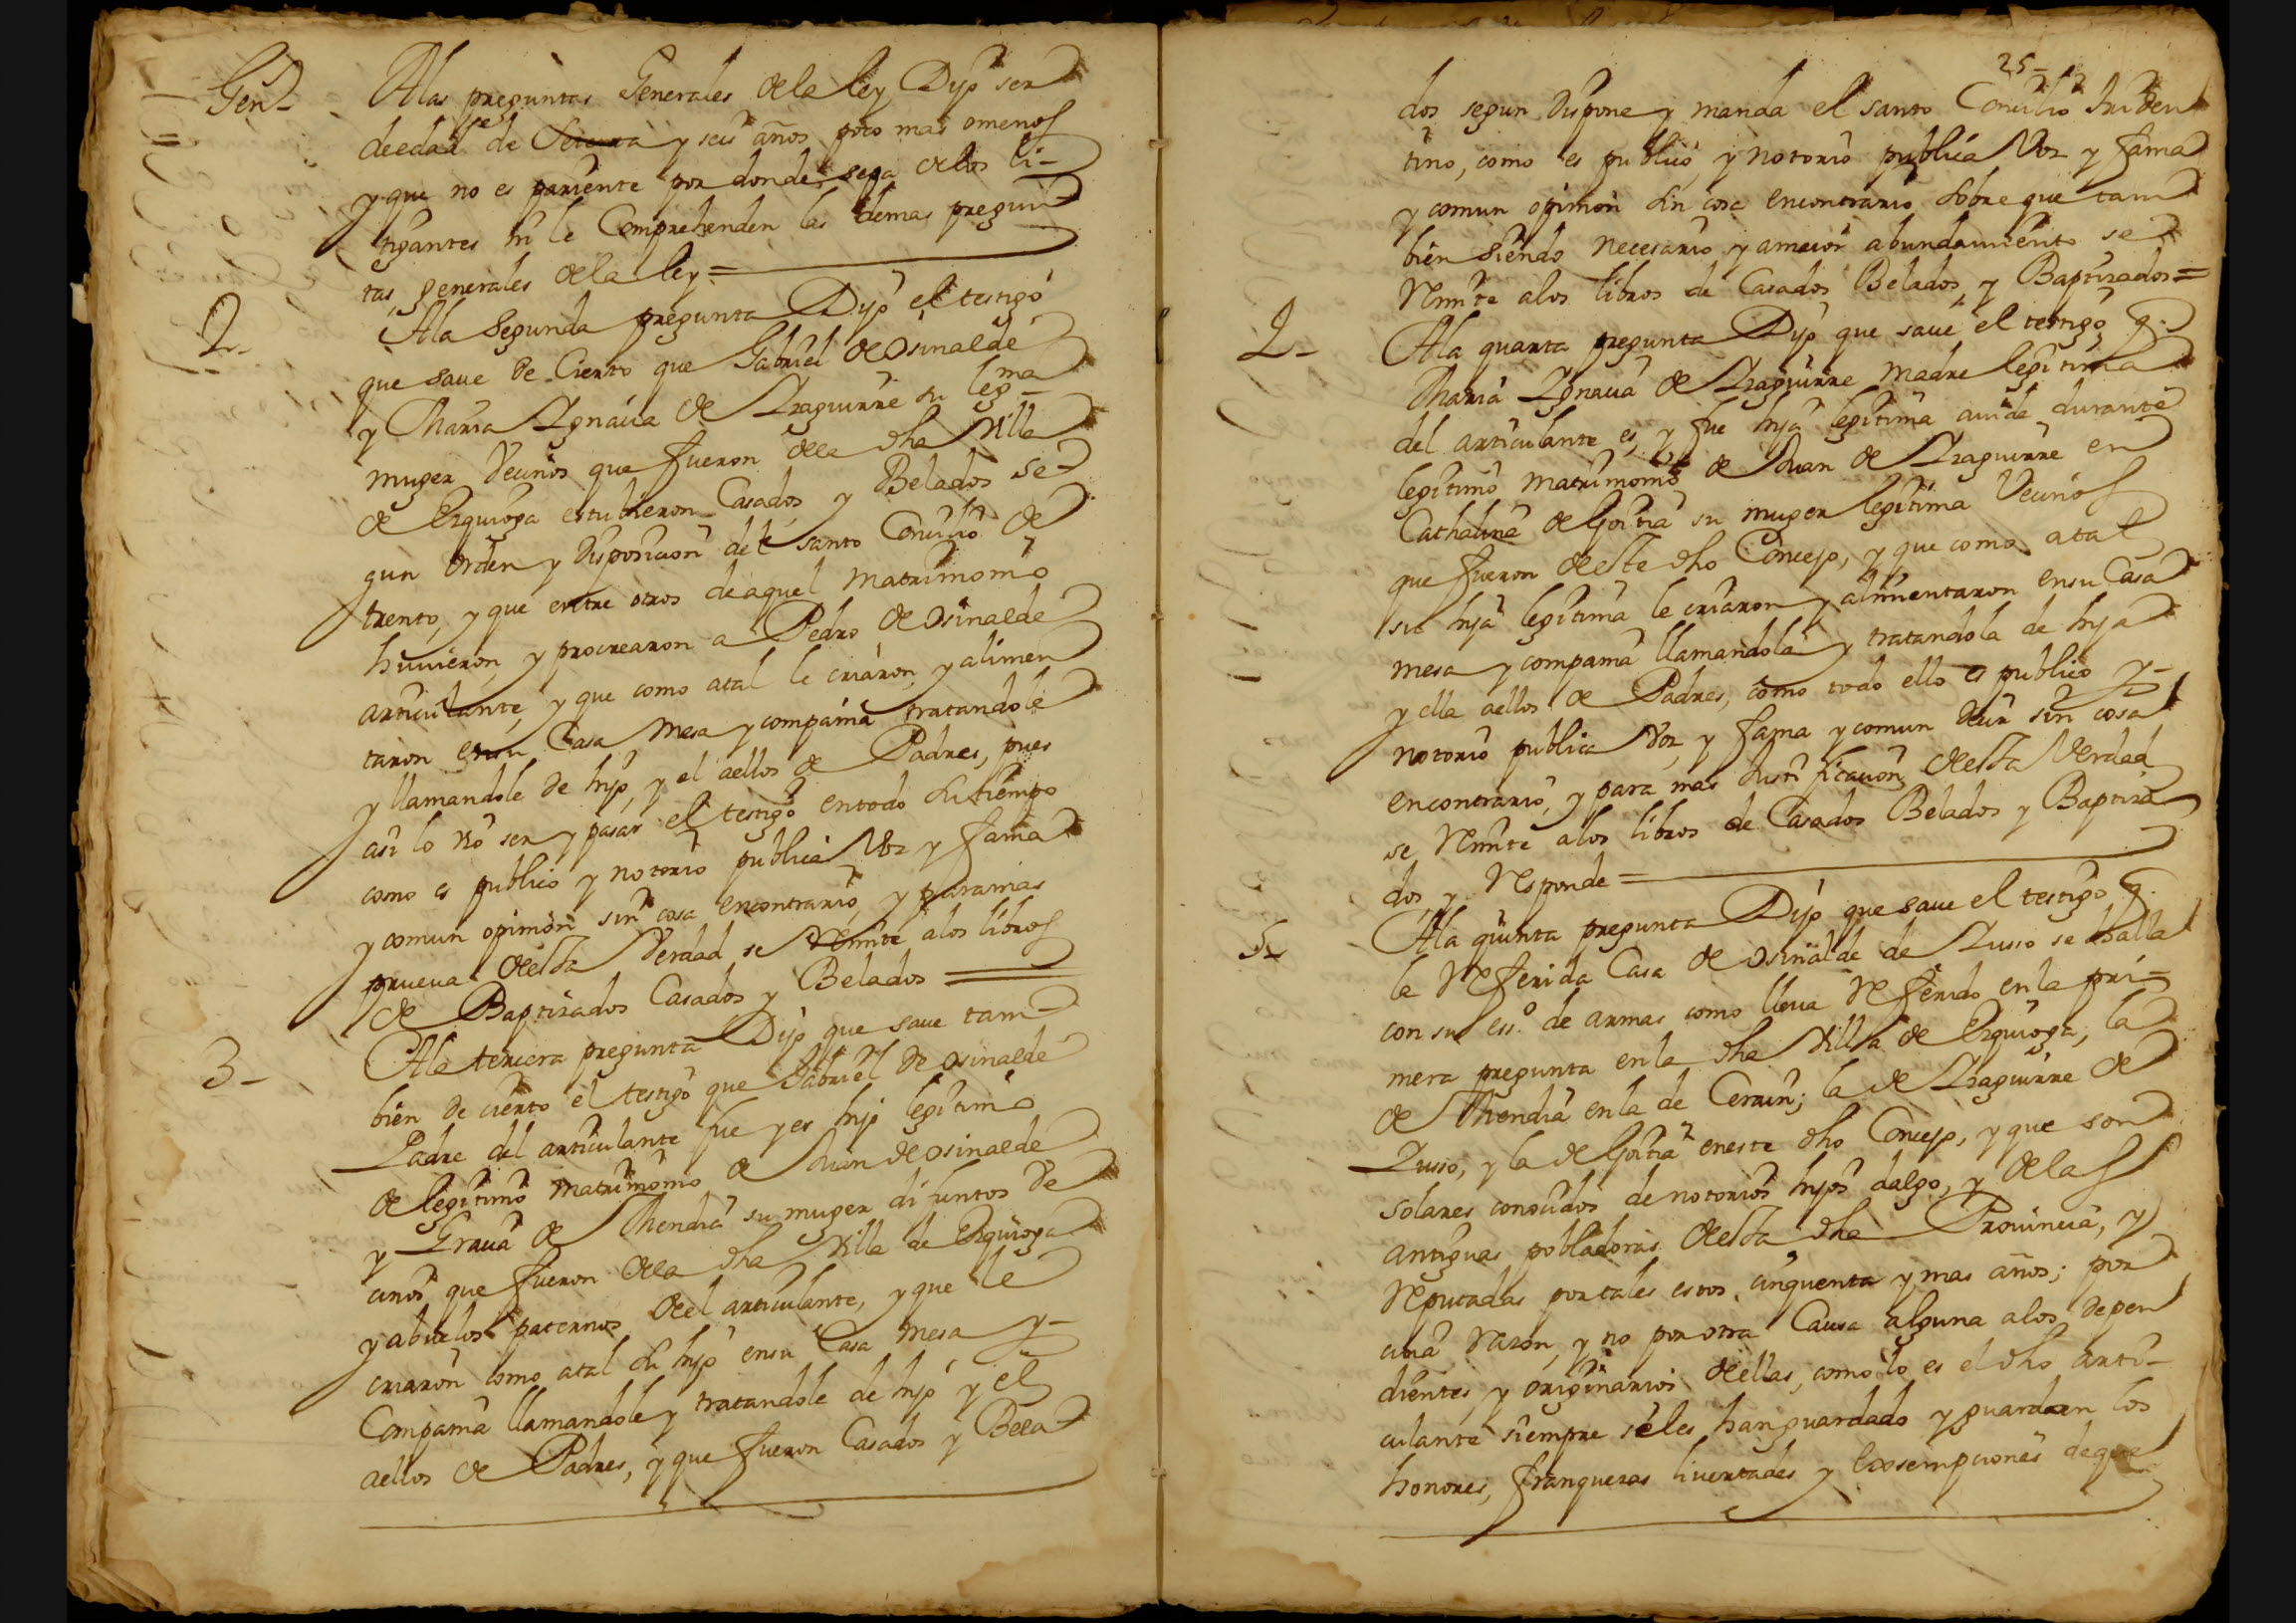 Gen.l
Alas preguntas Generales dela ley Dijo ser
deedad de Setenta y seis años poco mas omenos
y que no es pariente por donde sepa delos li-
tigantes ni le Comprehenden las demas pregun
tas generales dela ley =
2-
Ala Segunda pregunta Dijo el testigo
que saue de Cierto que Gabriel de osinalde
y Maria Ygnacia de Yzaguirre su leg.ma
muger Vecinos que fueron dela dha Villa
de Ezquioga estubieron Casados y Belados se
gun orden y disposicion del santo Concilio de
trento, y que entre otros deaquel matrimonio
huuieron, y procrearon a Pedro de osinalde
articulante, y que como atal le criaron, y alimen
taron ensu Casa mesa y compañia tratandole
y llamandole de hijo, y el aellos de Padres, pues
asi lo vio ser y pasar el testigo entodo su tiempo
como es publico y notorio publica Voz y fama
y comun opinion sin cosa encontrario, y paramas
prueua desta Verdad se Remite alos libros
de Baptizados Casados y Belados =
3-
Ala tercera pregunta Dijo que saue tam
bien de cierto el testigo que Gabriel de osinalde
Padre del articulante fue y es hijo legitimo
de legitimo matrimonio de Juan de osinalde
y Gracia de Mendia su muger difuntos Ve
cinos que fueron dela dha Villa de Ezquioga
y abuelos paternos del articulante, y que le
criaron como atal su hijo ensu Casa mesa y-
Compañia llamandole y tratandole de hijo y el
aellos de Padres, y que fueron Casados y Bela
25-
dos segun dispone y manda el santo Concilio triden
tino, como es publico, y notorio publica Voz y fama
y comun opinion sin cosa encontrario sobre que tam
bien siendo necesario y amaior abundamiento se
Remite alos libros de Casados Belados, y Baptizados =
Ala quarta pregunta Dijo que saue el testigo q.
Maria Ygnacia de Yzaguirre madre legitima
del articulante es, y fue hija legitima auida durante
legitimo matrimonio de Juan de Yzaguirre en
Cathalina de Goitia su muger legitima Vecinos
que fueron deste dho Concejo, y que como atal
su hija legitima le criaron y alimentaron ensu Casa
mesa y compañia llamandola y tratandola de hija
y ella aellos de Padres, como todo ello es publico y-
notorio publica Voz, y fama y comun decir sin cosa
encontrario, y para mas Justificacion desta Verdad
se Remite alos libros de Casados Belados y Baptiza
dos y Responde =
5-
Ala quinta pregunta Dijo que saue el testigo q.
la Referida Casa de osinalde de Yusso se halla
con su ess.o de armas como lleua Referido en la pri=
mera pregunta en la dha Villa de Ezquioga; la
de Mendia en la de Cerain; la de Yzaguirre de
Yusso, y la de Goitia eneste dho Concejo, y que son
solares conocidos de notorios hijos dalgo, y delas
antiguas pobladoras desta dha Prouincia, y
Reputadas por tales estos cinquenta y mas años; por
cuia Razon, y no por otra Causa alguna alos depen
dientes, y originarios dellas, como lo es el dho arti-
culante siempre seles han guardado y guardan los
honores, franquezas liuertades y Exsempciones deque